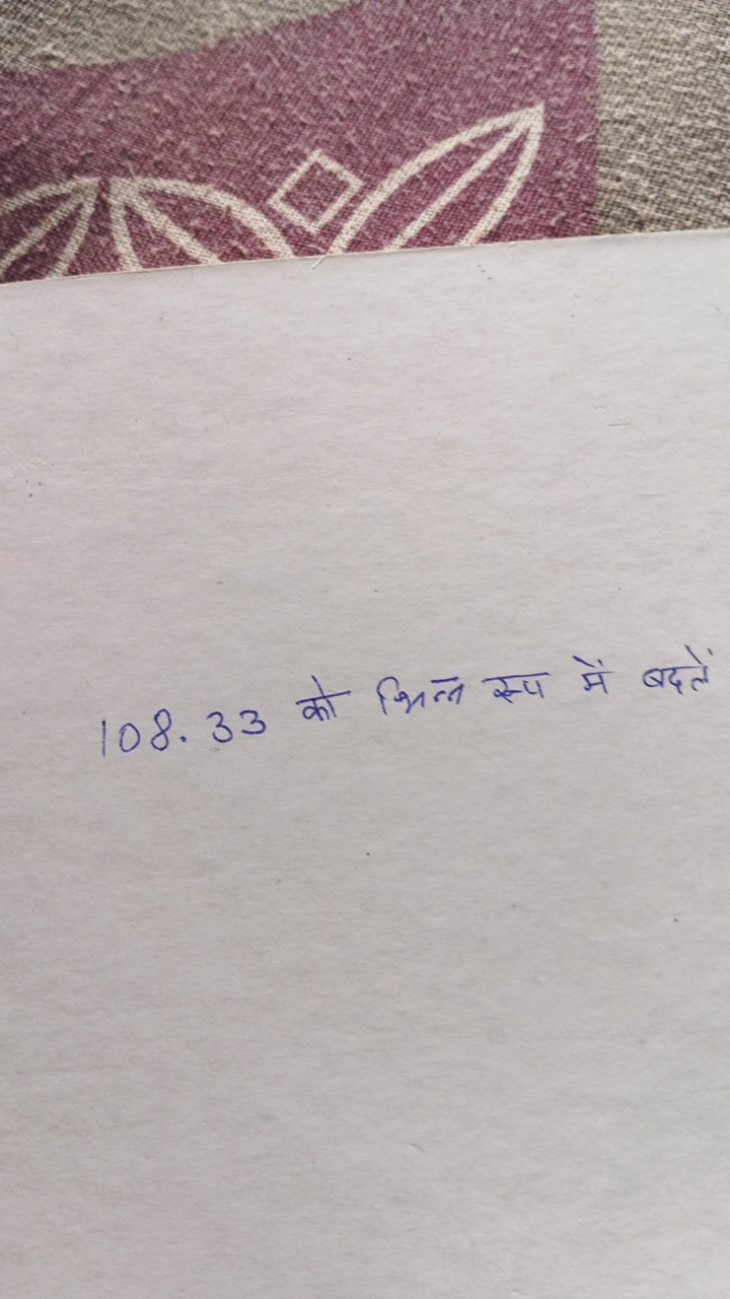 108.33 को भिन्न रूप में बदलें